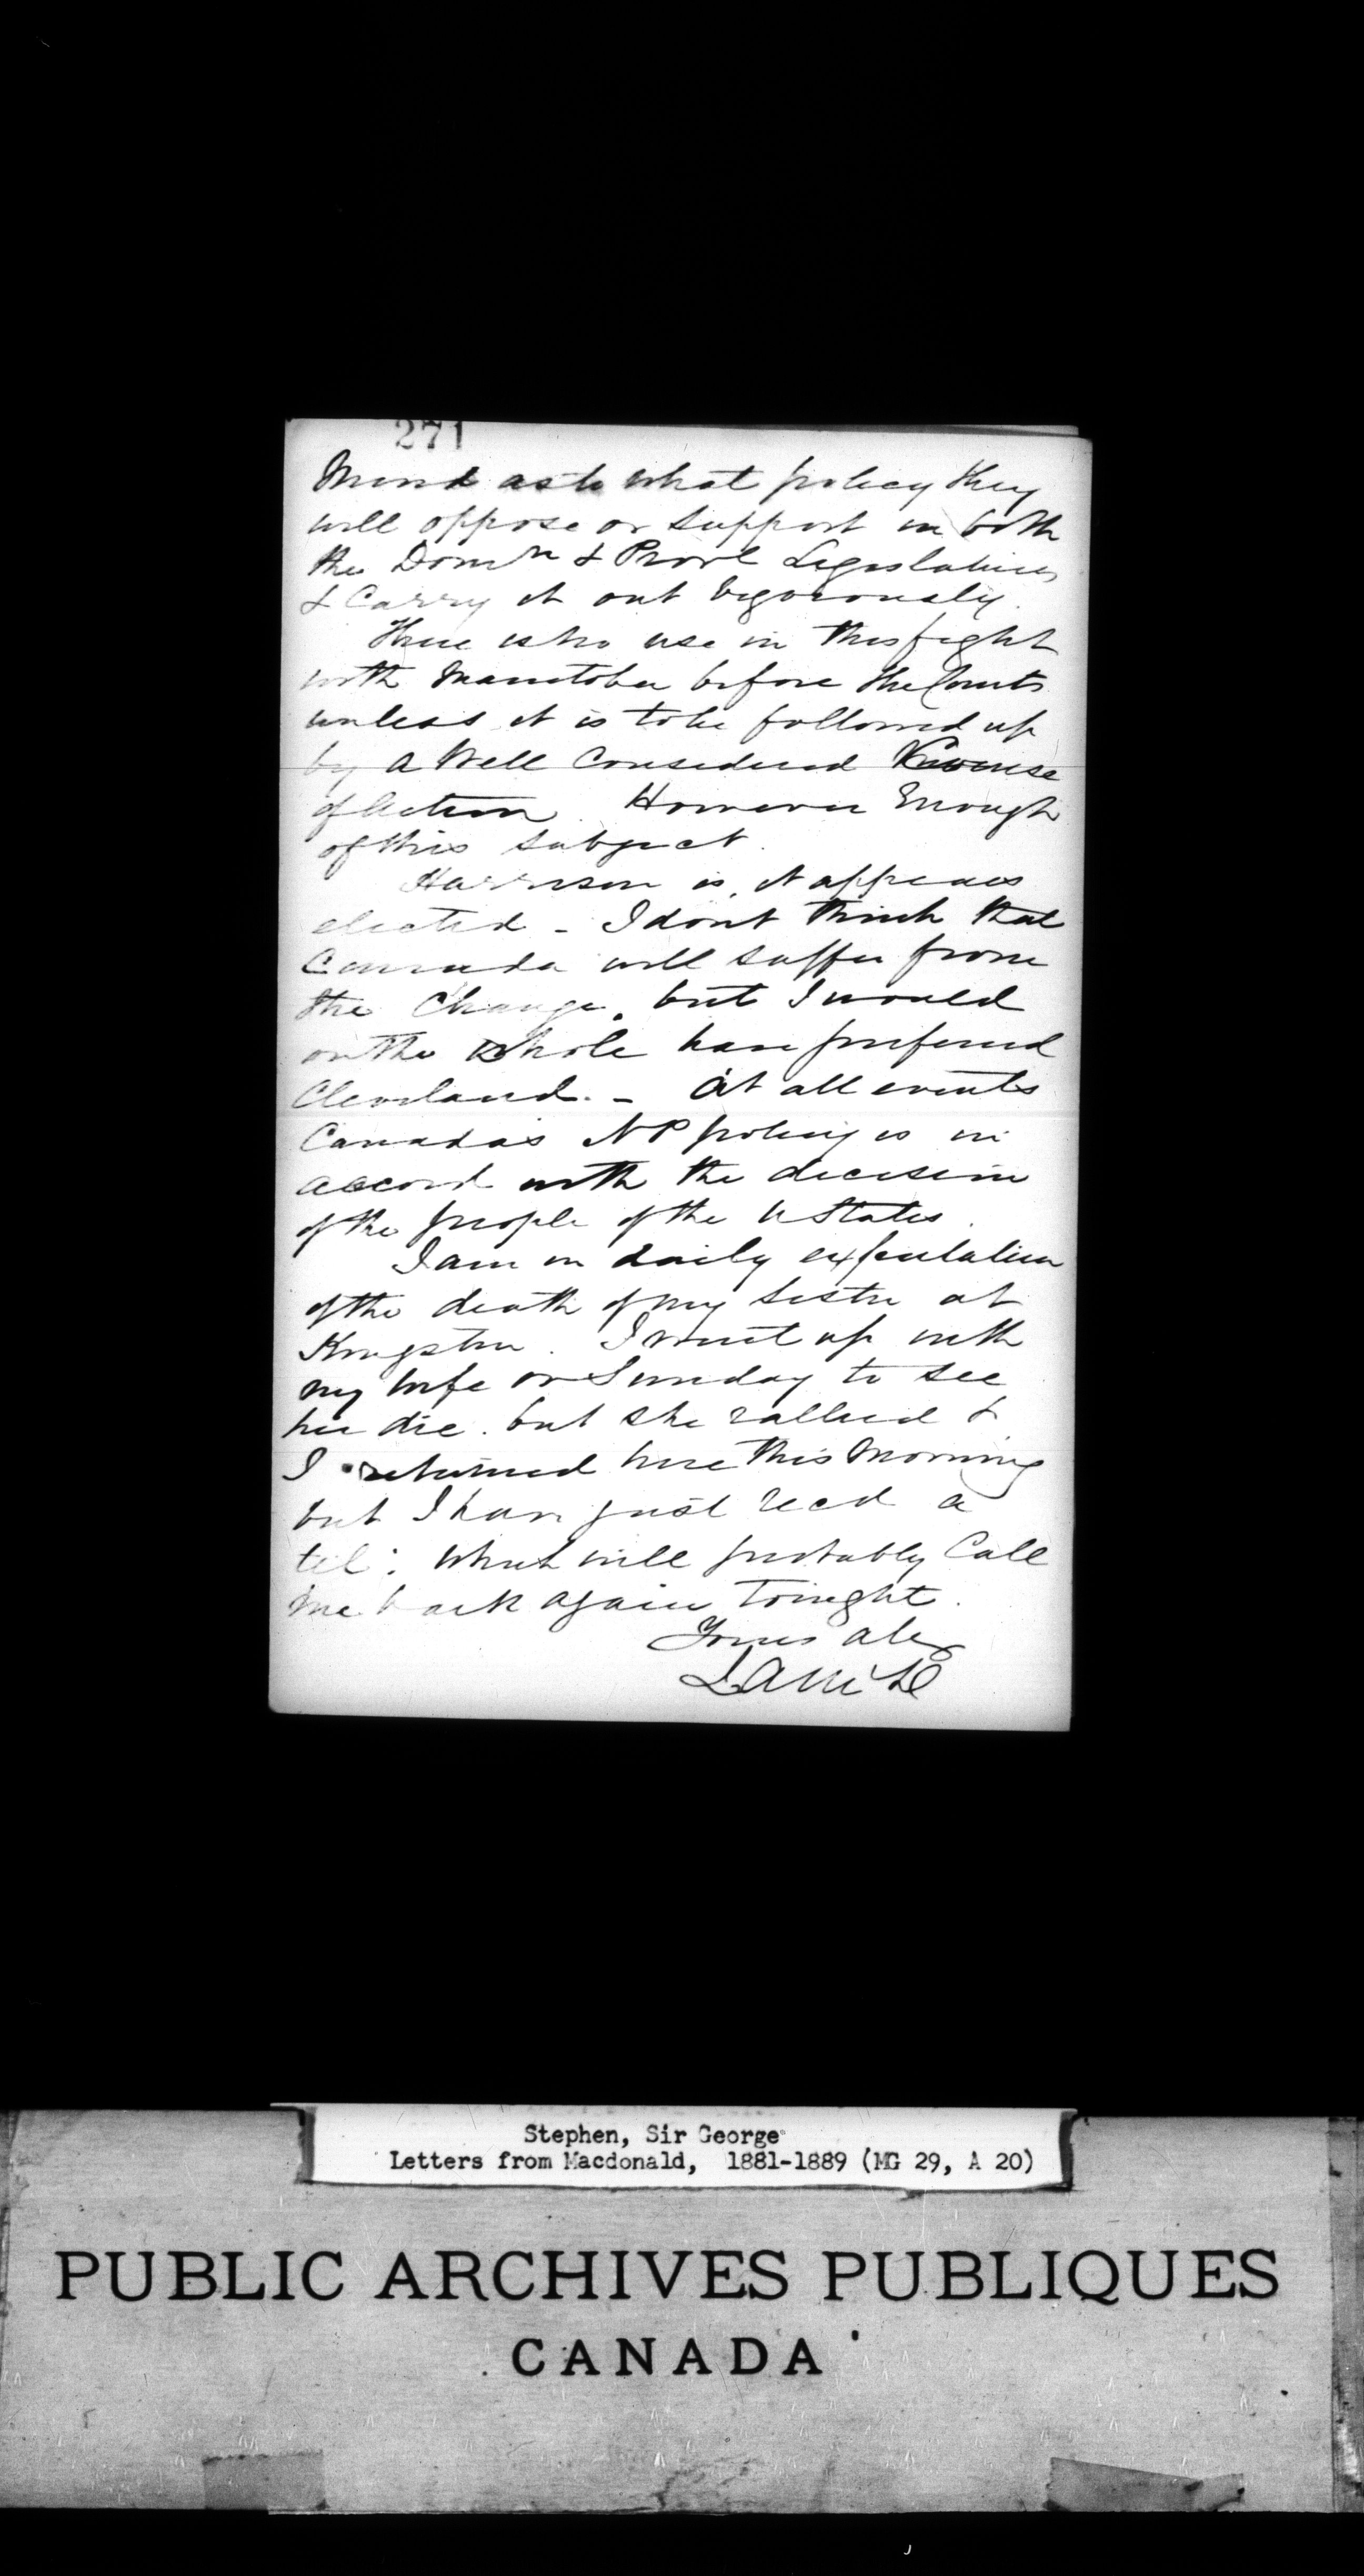 271
Mind as to what policy they
will oppose or support in both
the Dom<sup>n</sup> & Provl Legislatures
& Carry it out vigorously.
There is no use in this fight
with Manitoba before the Courts
unless it is to be followed up
by a Well Considered Course
of Action. However Enough
of this subject.
Harrison is, it appears
elected - I dont think that
Canada will suffer from
the Change, but I would
on the whole have preferred
Cleveland. - At all events
Canada's NP policy is in
accord with the decision
of the people of the U States.
I am in daily expectation
of the death of my Sister at
Kingston. I went up with
my wife on Sunday to see
her die. but she rallied &
I returned here this Morning
but I have just recd a
tel: which will probably Call
me back again Tonight.
Yours alwy
JAMcD
Stephen, Sir George
Letters from Macdonald, 1881-1889 (MG 29, A 20)
PUBLIC ARCHIVES PUBLIQUES
CANADA